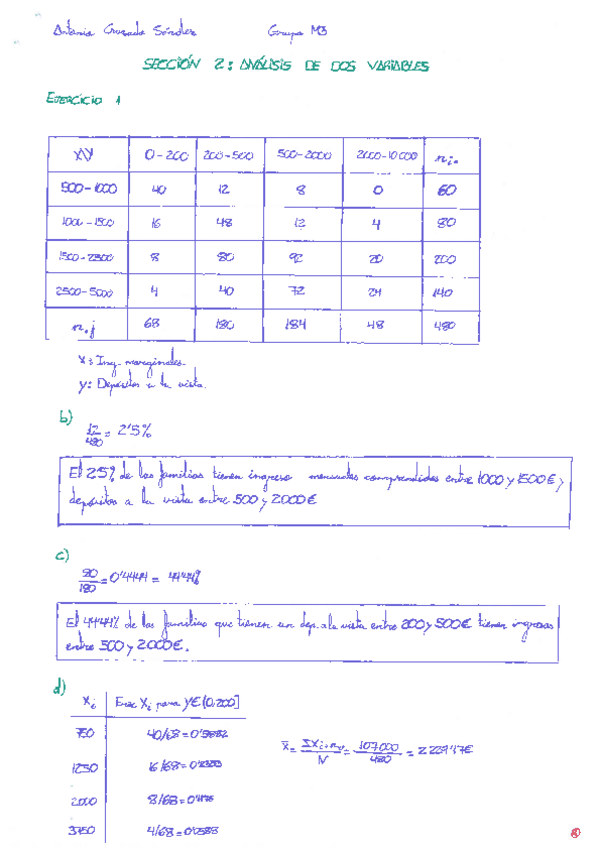 Antonia Cruzado Sández Grupo M3
SECCIÓN 2: ANÁLISIS DE DOS VARIABLES
EJERCICIO 1
X\Y 0-200 200-500 500-2000 2000-10000 ni.
500-1000 40 12 8 0 60
1000-1500 16 48 12 4 80
1500-2500 8 80 92 20 200
2500-5000 4 40 72 24 140
n.j 68 180 184 48 480
X: Ing. marginales.
y: Depósitos a la vista.
b)
12/480 = 2'5%
El 2'5% de las familias tienen ingreso mensuales comprendidos entre 1000 y 1500€ y
depósitos a la vista entre 500 y 2000€
c)
80/180 = 0'4444 = 44'44%
El 44'44% de las familias que tienen un dep. a la vista entre 200 y 500€ tienen ingresos
entre 500 y 2000€.
d)
Xi Xi para y∈(0,200]
750 40/68=0'5882
1250 16/68=
2000 8/68=0'1176
3750 4/68=0'0588
x̄ = ΣXi·ni./N = 107000/480 = 2229'17€